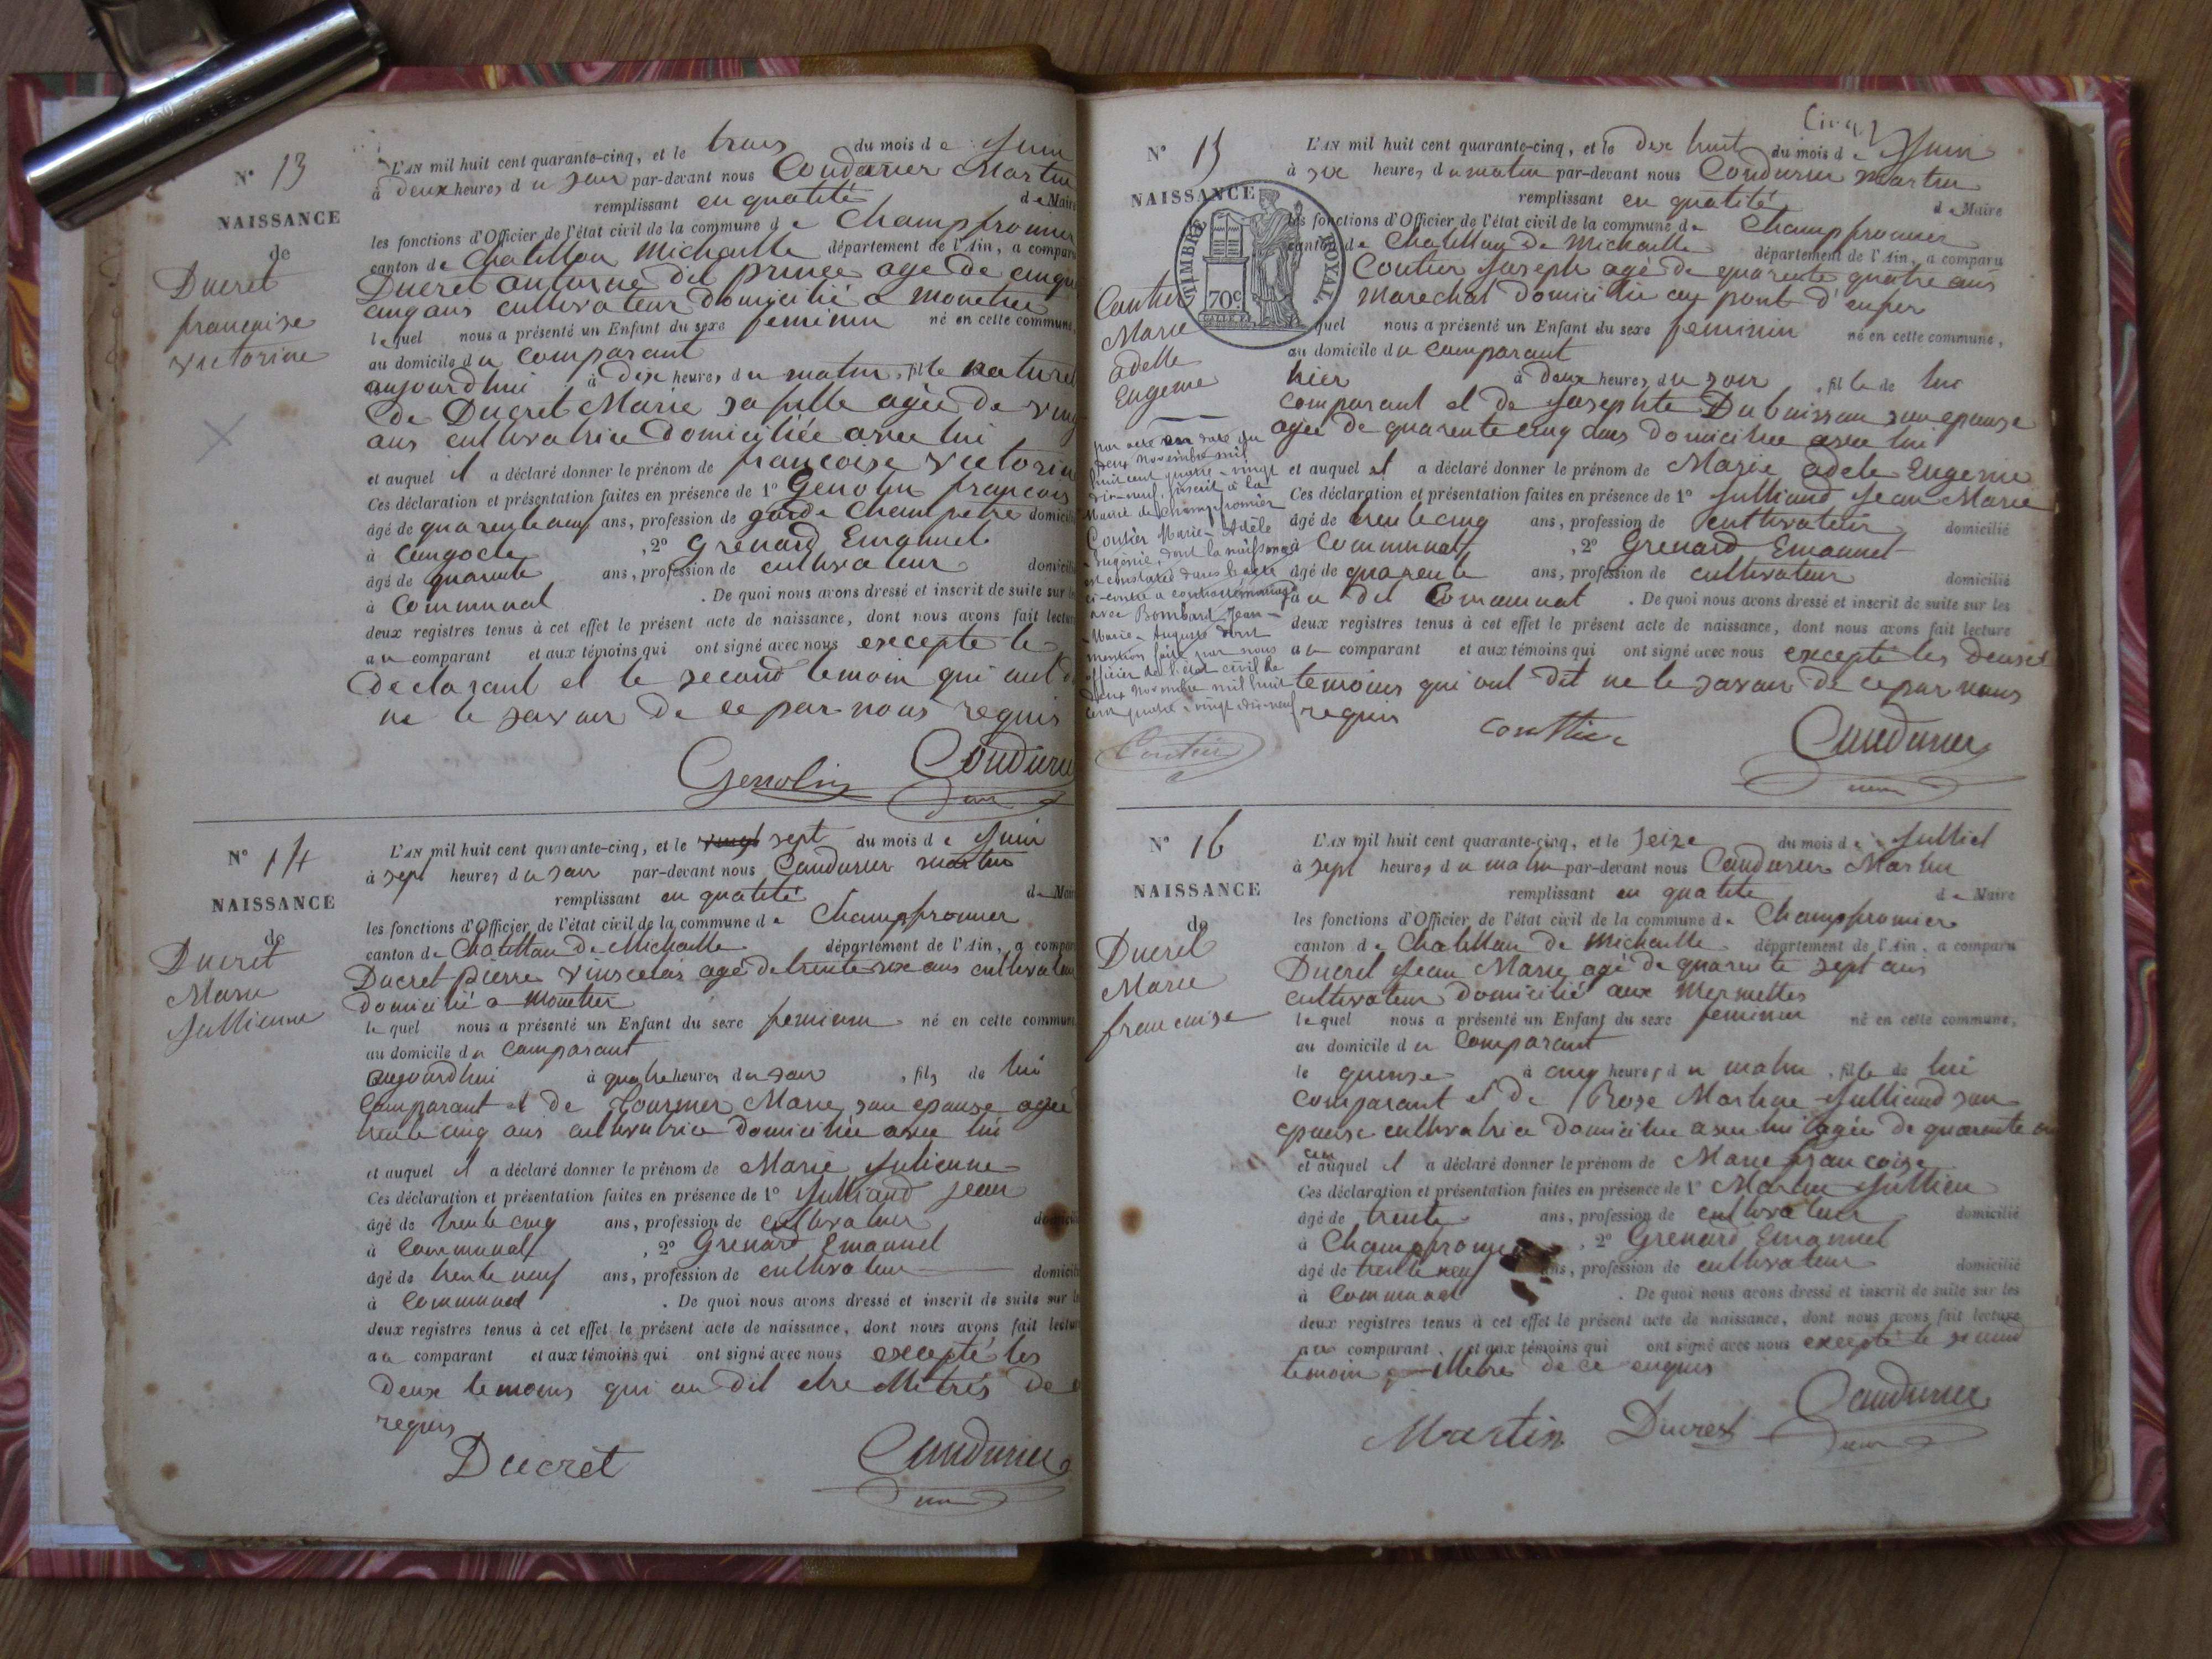 N° 13
NAISSANCE
de
Ducret
françoise
victorine
L'AN mil huit cent quarante-cinq, et le trois du mois de Juin
à deux heures du soir par-devant nous Coudurier Martin
remplissant en qualité de Maire
les fonctions d'Officier de l'état civil de la commune de Champfromier
canton de Chatillon Michaille département de l'Ain, a comparu
Ducret antoine dit prince agé de cinqu
cinq ans cultivateur domicilié a monetier
lequel nous a présenté un Enfant du sexe feminin né en cette commune,
au domicile du comparant
aujourdhui à dix heures du matin, fille naturel
de Ducret Marie sa fille agée de ving
ans cultivatrice domiciliée avec lui
et auquel il a déclaré donner le prénom de françoise victorine
Ces déclaration et présentation faites en présence de 1° Genolin françois
âgé de quarente neuf ans, profession de garde champetre domicilié
à Congocle, 2° Grenard Emanuel
âgé de quarente ans, profession de cultivateur domicilié
à Communal. De quoi nous avons dressé et inscrit de suite sur les
deux registres tenus à cet effet le présent acte de naissance, dont nous avons fait lecture
au comparant et aux témoins qui ont signé avec nous excepté le
déclarant et le second temoin qui ont d
ne le savoir de ce par nous requis
Genolin Coudurier
N° 14
NAISSANCE
de
Ducret
Marie
Jullienne
L'AN mil huit cent quarante-cinq, et le vingt sept du mois de Juin
à sept heures du soir par-devant nous Coudurier martin
remplissant en qualité de Maire
les fonctions d'Officier de l'état civil de la commune de Champfromier
canton de Chatillon De Michaille département de l'Ain, a comparu
Ducret pierre vinscelas agé de trente six ans cultivateur
domicilié a monetier
lequel nous a présenté un Enfant du sexe feminin né en cette commune
au domicile du comparant
aujourdhui à quatre heures du soir, fils de lui
comparant et de tournier Marie son epouse agée
trente cinq ans cultivatrice domiciliée avec lui
et auquel il a déclaré donner le prénom de Marie Julienne
Ces déclaration et présentation faites en présence de 1° Julliand Jean
âgé de trente cinq ans, profession de cultivateur domicilié
à Communal, 2° Grenard Emanuel
âgé de trente neuf ans, profession de cultivateur domicilié
à Communal. De quoi nous avons dressé et inscrit de suite sur les
deux registres tenus à cet effet le présent acte de naissance, dont nous avons fait lecture
au comparant et aux témoins qui ont signé avec nous excepté les
Deux temoins qui on dit etre illetrés de
requis
Ducret Coudurier
N° 15
NAISSANCE
TIMBRE ROYAL.
70c
Coutier
Marie
adelle
Eugenie
par acte en date du
deux novembre mil
huit cent quatre-vingt
dix-neuf, inscrit à la
Mairie de Champfromier
Coutier Marie-Adèle
Eugénie, dont la naissance
est constatée dans l'acte
ci-contre a contracté mariage
avec Bombard Jean-
Marie-Auguste dont
mention faite par nous
officier de l'état civil le
deux Novembre mil huit
cent quatre-vingt-dix-neuf
Coutier
L'AN mil huit cent quarante-cinq, et le Dix huit du mois de Juin
à six heures du matin par-devant nous Coudurier martin
remplissant en qualité de Maire
les fonctions d'Officier de l'état civil de la commune de Champfromier
canton de Chatillon De Michaille département de l'Ain, a comparu
Coutier Joseph agé de quarente quatre ans
marechal domicilié au pont d'enfer
lequel nous a présenté un Enfant du sexe feminin né en cette commune,
au domicile du comparant
hier à deux heures du soir, fille de lui
comparant et de Josephte Dubuisson son epouse
agée de quarente cinq ans domiciliée avec lui
et auquel il a déclaré donner le prénom de Marie adele Eugenie
Ces déclaration et présentation faites en présence de 1° Julliand Jean Marie
âgé de trente cinq ans, profession de cultivateur domicilié
à Communal, 2° Grenard Emanuel
âgé de quarente ans, profession de cultivateur domicilié
au dit Communal. De quoi nous avons dressé et inscrit de suite sur les
deux registres tenus à cet effet le présent acte de naissance, dont nous avons fait lecture
au comparant et aux témoins qui ont signé avec nous excepté les deux
temoins qui ont dit ne le savoir de ce par nous
requis
Couttier Coudurier
N° 16
NAISSANCE
de
Ducret
Marie
francoise
L'AN mil huit cent quarante-cinq, et le seize du mois de Julliet
à sept heures du matin par-devant nous Coudurier Martin
remplissant en qualité de Maire
les fonctions d'Officier de l'état civil de la commune de Champfromier
canton de Chatillon de Michaille département de l'Ain, a comparu
Ducret Jean Marie agé de quarente sept ans
cultivateur domicilié aux mermettes
lequel nous a présenté un Enfant du sexe feminin né en cette commune,
au domicile du comparant
le quinse à cinq heures du matin, fille de lui
comparant et de Rose Martine Julliand son
epouse cultivatrice domiciliée avec lui agée de quarente
et auquel il a déclaré donner le prénom de Marie francoise
Ces déclaration et présentation faites en présence de 1° Martin Jullien
âgé de trente ans, profession de cultivateur domicilié
à Champfromier, 2° Grenard Emanuel
âgé de trente neuf ans, profession de cultivateur domicilié
à Communal. De quoi nous avons dressé et inscrit de suite sur les
deux registres tenus à cet effet le présent acte de naissance, dont nous avons fait lecture
au comparant et aux témoins qui ont signé avec nous excepté le second
temoin illetré de ce enquis
Martin Ducret Coudurier